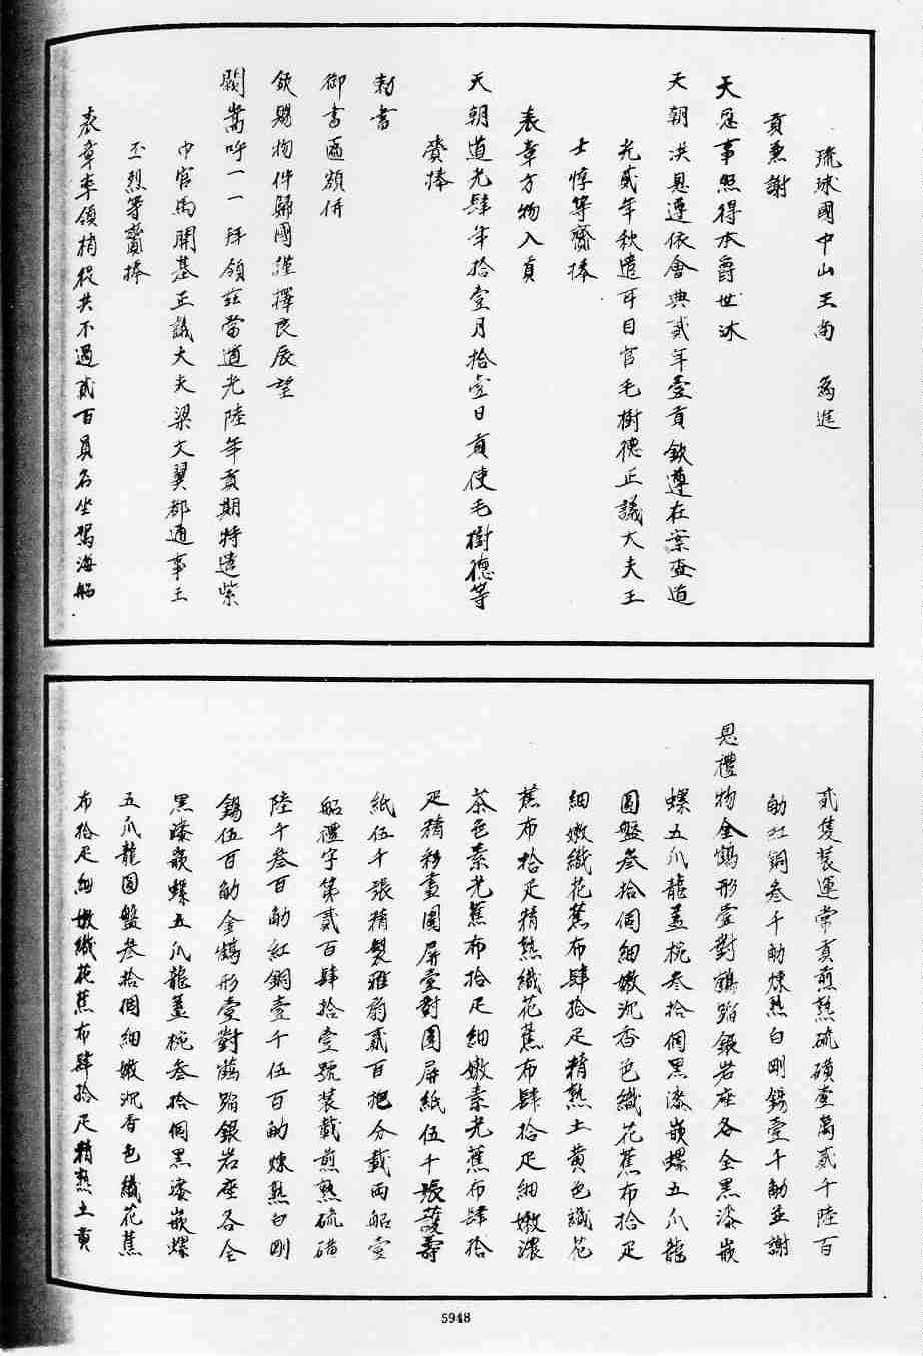 琉球國中山王尚 為進
貢兼謝
天恩事照得本爵世沐
天朝洪恩遵依會典貳年壹貢欽遵在案查道
光貳年秋遣耳目官毛樹德正議大夫王
士惇等齎捧
表章方物入貢
天朝道光肆年拾壹月拾壹日貢使毛樹德等
齎捧
勅書
御書匾額併
欽賜物件歸國謹擇良辰望
闕嵩呼一一拜領玆當道光陸年貢期特遣紫
巾官馬開基正議大夫梁文翼都通事王
丕烈等齎捧
表章率領梢役共不過貳百員名坐駕海船
貳隻裝運常貢煎熟硫磺壹萬貳千陸百
觔紅銅叁千觔煉熟白剛錫壹千觔並謝
恩禮物金鶴形壹對鶴踏銀岩座各全黑漆嵌
螺五爪龍蓋椀叁拾個黑漆嵌螺五爪龍
圓盤叁拾個細嫩沉香色織花蕉布拾疋
細嫩織花蕉布肆拾疋精熟土黃色織花
蕉布拾疋精熟織花蕉布肆拾疋細嫩濃
茶色素光蕉布拾疋細嫩素光蕉布肆拾
疋精彩畫圍屏壹對圍屏紙伍千張護壽
紙伍千張精製雅扇貳百把分載兩船壹
船禮字第貳百肆拾壹號裝載煎熟硫磺
陸千叁百觔紅銅壹千伍百觔煉熟白剛
錫伍百觔金鶴形壹對鶴踏銀岩座各全
黑漆嵌螺五爪龍蓋椀叁拾個黑漆嵌螺
五爪龍圓盤叁拾個細嫩沉香色織花蕉
布拾疋細嫩織花蕉布肆拾疋精熟土黃
5948